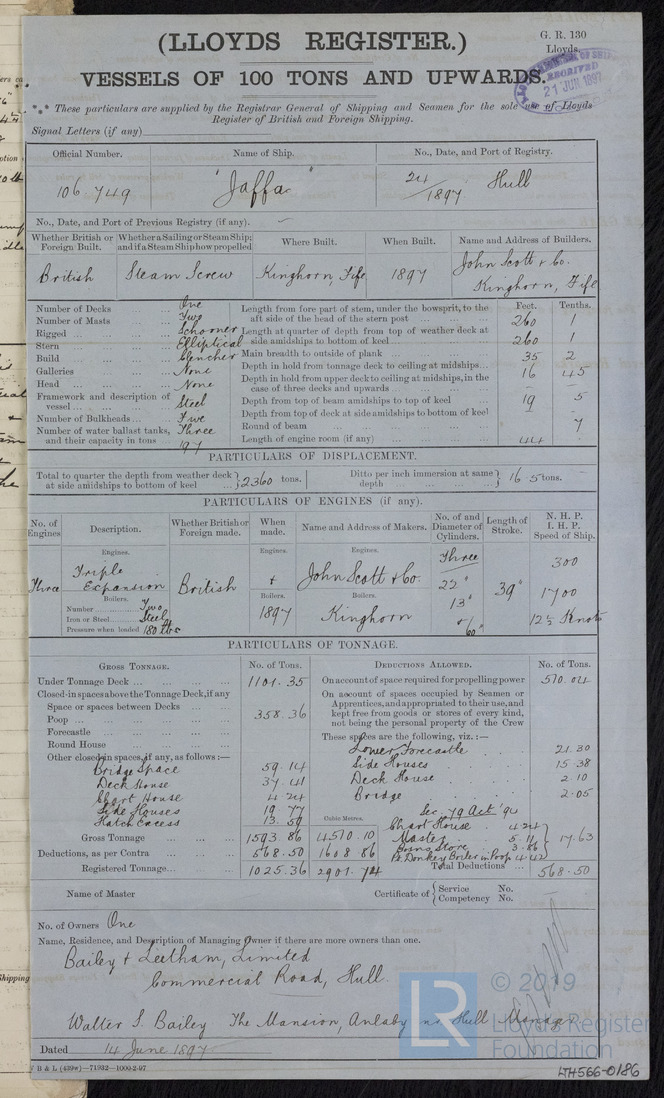 (LLOYDS REGISTER.)
G. R. 130
Lloyds.
VESSELS OF 100 TONS AND UPWARDS.
RECEIVED
21 JUN 1897
These particulars are supplied by the Registrar General of Shipping and Seamen for the sole use of Lloyds
Register of British and Foreign Shipping.
Signal Letters (if any)
Official Number. Name of Ship. No., Date, and Port of Registry.
106,749 "Jaffa" 24/1897 Hull
No., Date, and Port of Previous Registry (if any). —
Whether British or Foreign Built. Whether a Sailing or Steam Ship; and if a Steam Ship how propelled Where Built. When Built. Name and Address of Builders.
British Steam Screw Kinghorn, Fife 1897 John Scott & Co. Kinghorn, Fife
Number of Decks One
Number of Masts Two
Rigged Schooner
Stern Elliptical
Build Clencher
Galleries None
Head None
Framework and description of vessel Steel
Number of Bulkheads Five
Number of water ballast tanks, and their capacity in tons Three 197
Feet. Tenths.
Length from fore part of stem, under the bowsprit, to the aft side of the head of the stern post 260 1
Length at quarter of depth from top of weather deck at side amidships to bottom of keel 260 1
Main breadth to outside of plank 35 2
Depth in hold from tonnage deck to ceiling at midships 16 45
Depth in hold from upper deck to ceiling at midships, in the case of three decks and upwards —
Depth from top of beam amidships to top of keel 19 5
Depth from top of deck at side amidships to bottom of keel
Round of beam 7
Length of engine room (if any) 44 —
PARTICULARS OF DISPLACEMENT.
Total to quarter the depth from weather deck at side amidships to bottom of keel 2360 tons. Ditto per inch immersion at same depth 16.5 tons.
PARTICULARS OF ENGINES (if any).
No. of Engines Description. Whether British or Foreign made. When made. Name and Address of Makers. No. of and Diameter of Cylinders. Length of Stroke. N. H. P. I. H. P. Speed of Ship.
Engines. Engines. Engines. Engines.
Three Triple Expansion British & John Scott & Co. Three 22" 39" 300
Boilers. Boilers. Boilers. 1700
Number Two
Iron or Steel Steel
Pressure when loaded 180 lbs
1897 Kinghorn & 60" 12½ Knots
PARTICULARS OF TONNAGE.
GROSS TONNAGE. No. of Tons.
Under Tonnage Deck 1101.35
Closed-in spaces above the Tonnage Deck, if any
Space or spaces between Decks
Poop 358.36
Forecastle
Round House
Other closed-in spaces, if any, as follows :—
Bridge Space 59.14
Deck House 37.41
Chart House 4.24
Side Houses 19.77
Hatch Excess 13.59
Cubic Metres.
Gross Tonnage 1593.86 4510.10
Deductions, as per Contra 568.50 1608.86
Registered Tonnage 1025.36 2901.74
DEDUCTIONS ALLOWED. No. of Tons.
On account of space required for propelling power 510.04
On account of spaces occupied by Seamen or Apprentices, and appropriated to their use, and kept free from goods or stores of every kind, not being the personal property of the Crew
These spaces are the following, viz. :—
Lower Forecastle 21.30
Side Houses 15.38
Deck House 2.10
Bridge 2.05
Sec. 79 Act '94
Chart House 4.24
Master 5.11
Bosns Store 3.86
Pt. Donkey Boiler in Poop 4.42
17.63
Total Deductions 568.50
Name of Master
Certificate of Service No.
Competency No.
No. of Owners One
Name, Residence, and Description of Managing Owner if there are more owners than one.
Bailey & Leetham, Limited
Commercial Road, Hull.
Walter S. Bailey The Mansion, Anlaby nr Hull Manag
Dated 14 June 1897
B & L (439w)—71932—1000-2-97
LTH566-0186
LR
© 2019
Lloyd's Register
Foundation